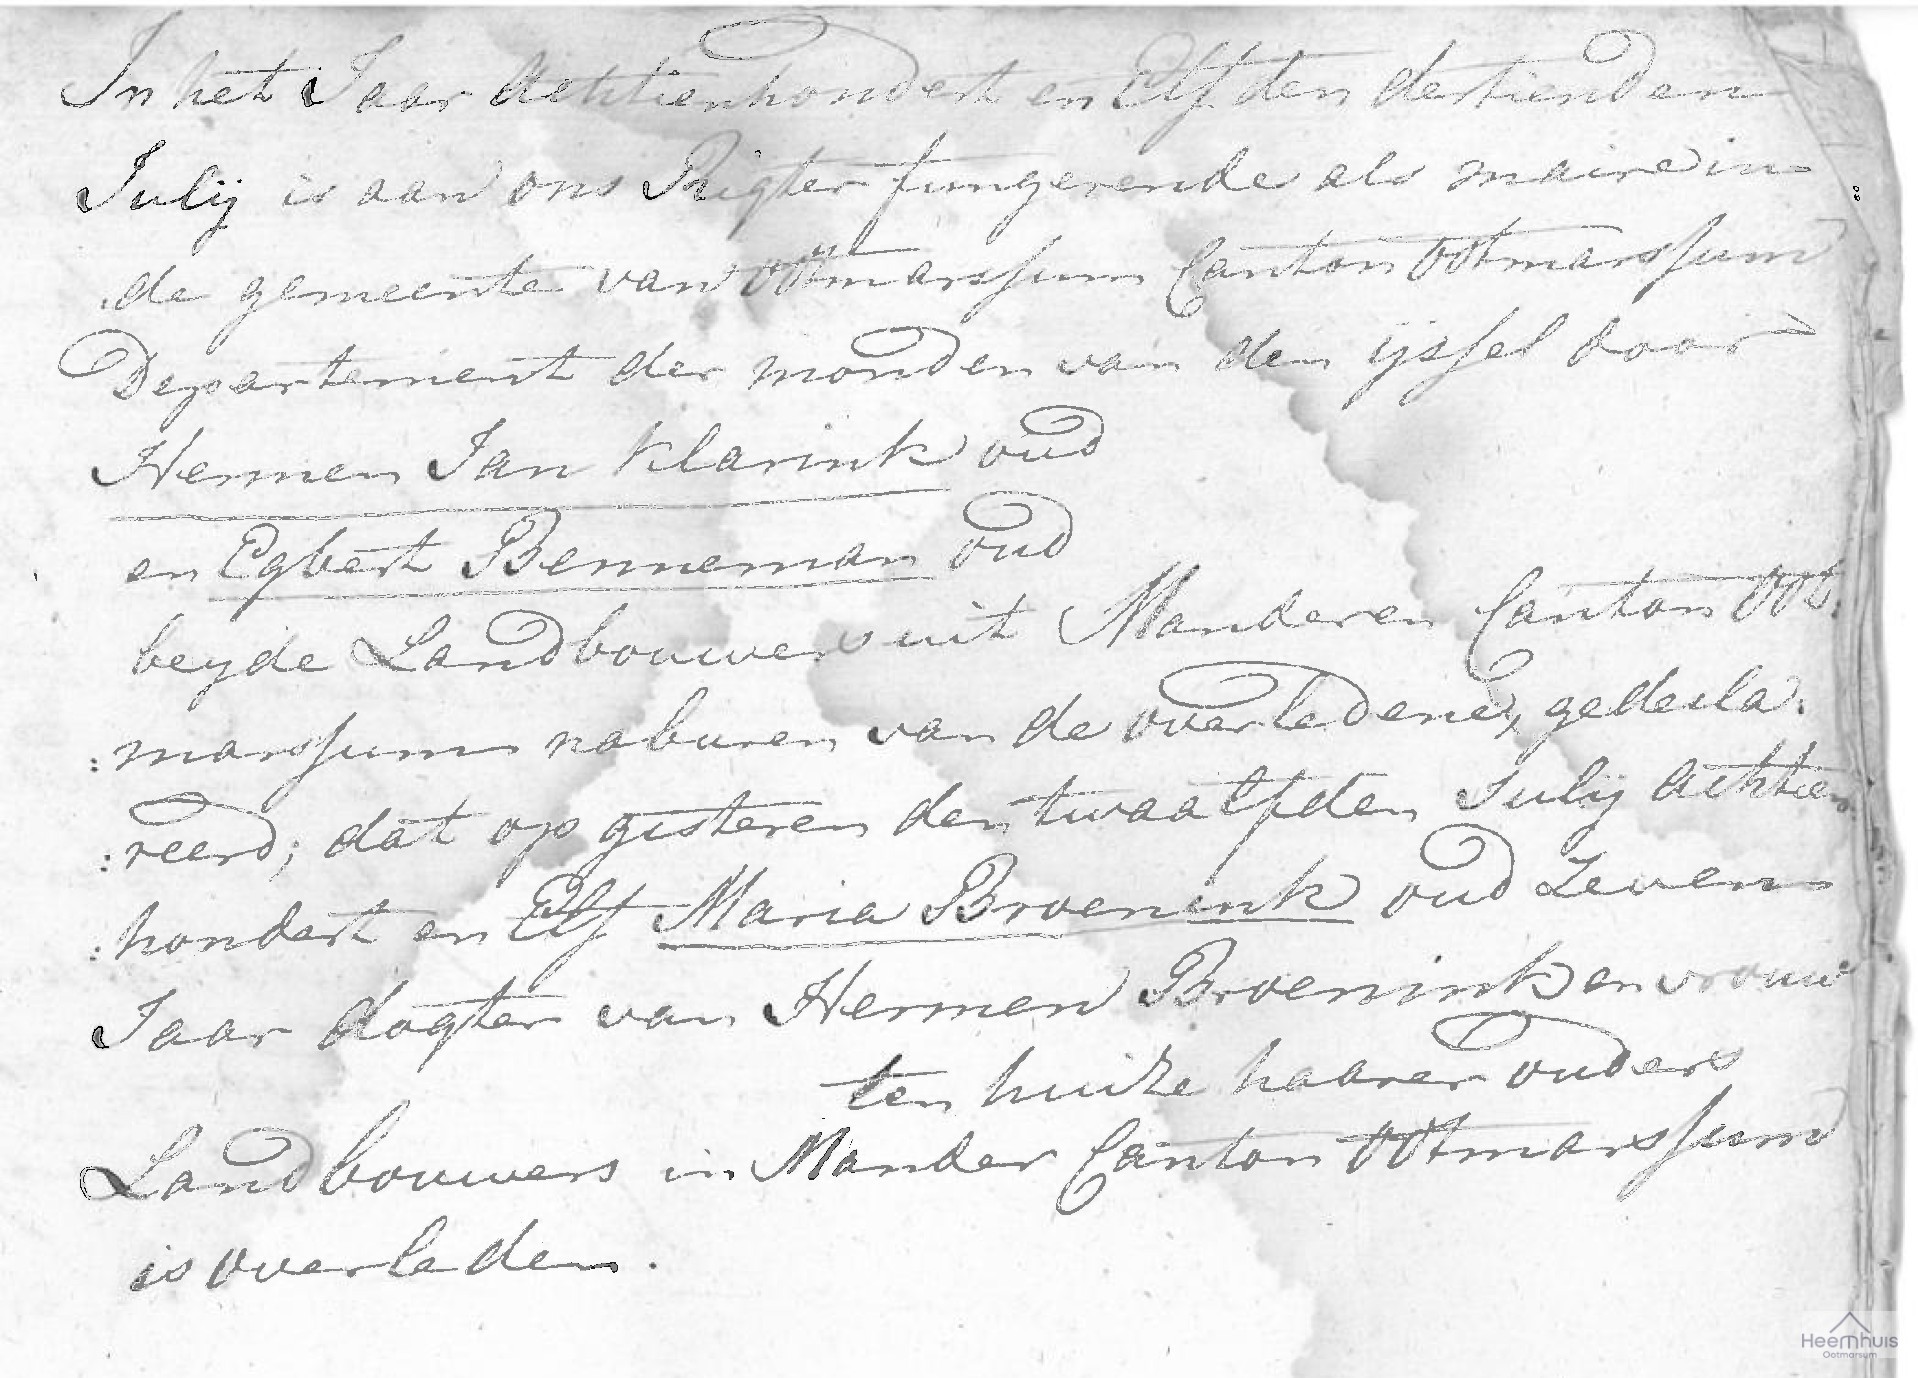 In het Jaar Achttienhondert en Elf den dertienden
Julij is aan ons Rigter fungerende als maire in
de gemeente van Ootmarssum Canton Ootmarssum
Departement der monden van den ijssel door
Hermen Jan Klarink oud
en Egbert Benneman oud
beyde Landbouwers uit Manderen Canton Oot:
:marssum naburen van de overledene, gedecla:
:reerd; dat op gisteren den twaalfden Julij Achtien
:hondert en Elf Maria Broenink oud Zeven
Jaar dogter van Hermen Broenink en vrouw
ten huize haarer ouders
Landbouwers in Mander Canton Ootmarssum
is overleden.
Heemhuis
Ootmarsum